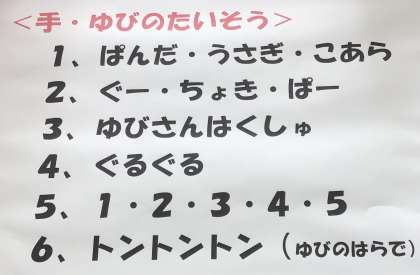 ＜手・ゆびのたいそう＞
1、ぱんだ・うさぎ・こあら
2、ぐー・ちょき・ぱー
3、ゆびさんはくしゅ
4、ぐるぐる
5、1・2・3・4・5
6、トントントン（ゆびのはらで）